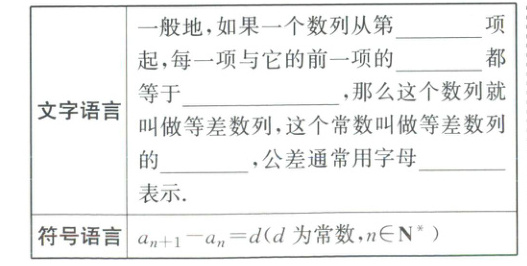 一般地,如果一个数列从第________项
起,每一项与它的前一项的________都
等于______________,那么这个数列就
文字语言
叫做等差数列,这个常数叫做等差数列
的________,公差通常用字母________
表示.
符号语言 aₙ₊₁-aₙ=d(d 为常数,n∈N*)